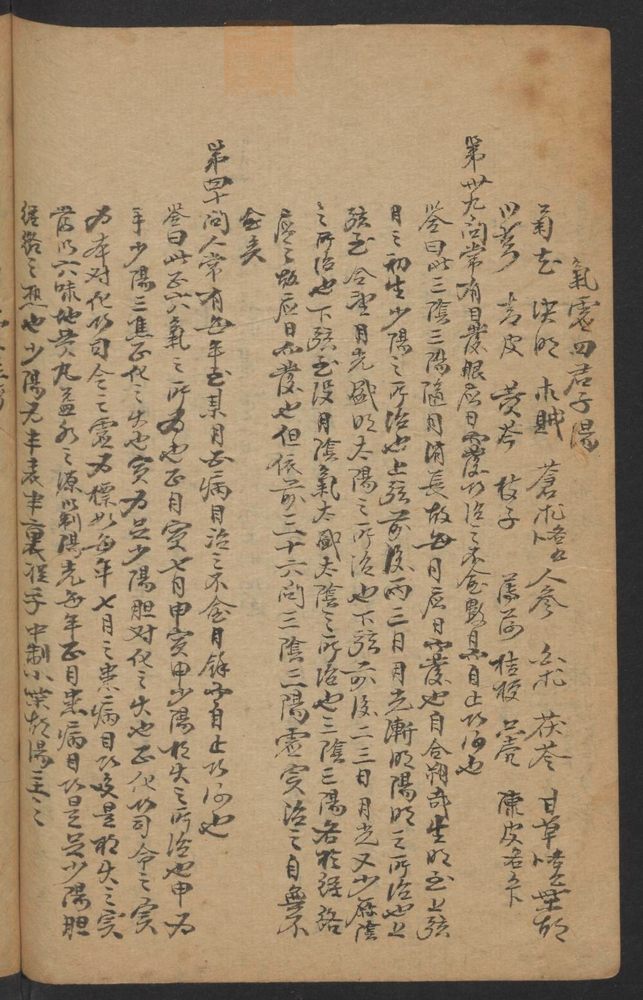 氣虛四君子湯
菊花 決明 木賊 蒼朮 人參 白朮 茯苓 甘草 柴胡
川芎 青皮 黃芩 枝子 薄荷 桔梗 只壳 陳皮各等
第卅九問常有目發眼應日而發以治之不愈數日而自止以何也
答曰此三陰三陽隨月消長故每月應日而發也自合朔前生明至上弦
月之初生少陽之所治也上弦前後兩三日月光漸明陽明之所治也上
弦至合望月光盛明太陽之所治也下弦前後二三日月光又少厥陰
之所治也下弦至沒月陰氣太盛太陰之所治也三陰三陽各於經絡
應之故應日而發也但依前二十六問三陰三陽虛實治之自無不
愈矣
第四十問人常有每年至某月而病目治之不愈月餘而自止以何也
答曰此正六氣之所為也正月寅七月申寅申少陽相火之所治也申為
手少陽三焦正化之火也寅為足少陽胆对化之火也正化以司令之實
為本对化以司令之虛為標如每年七月之患病目以是相火之實
當以六味地黃丸益水之源以制陽光每年正月患病目以是足少陽胆
經絡之熱也少陽尤半表半裏從乎中制小柴胡湯主之